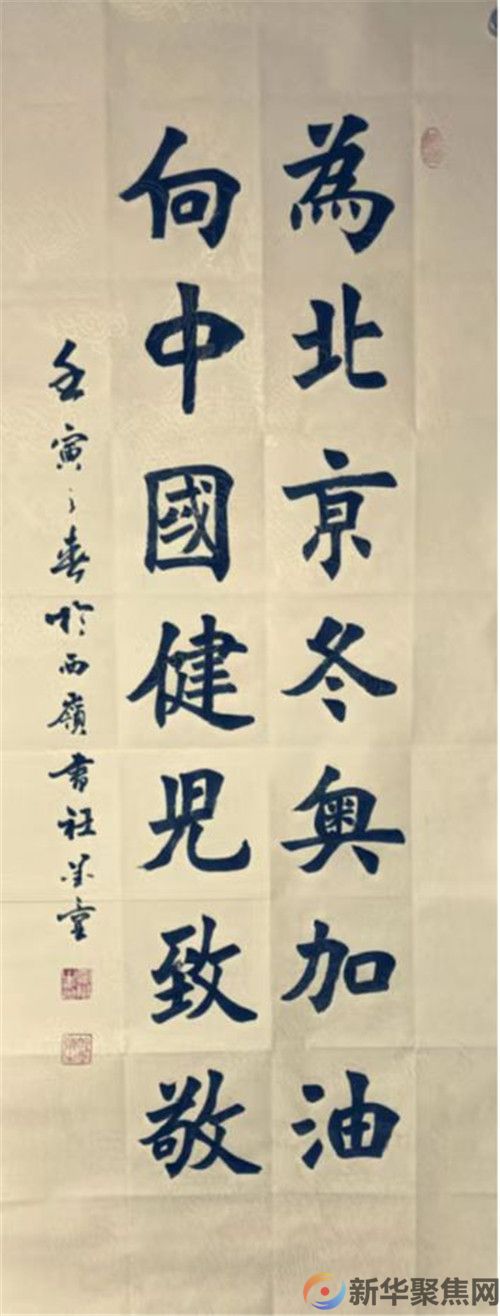 為北亰冬奥加油
向中國健児致敬
壬寅之春於西嶺書
新华聚焦网